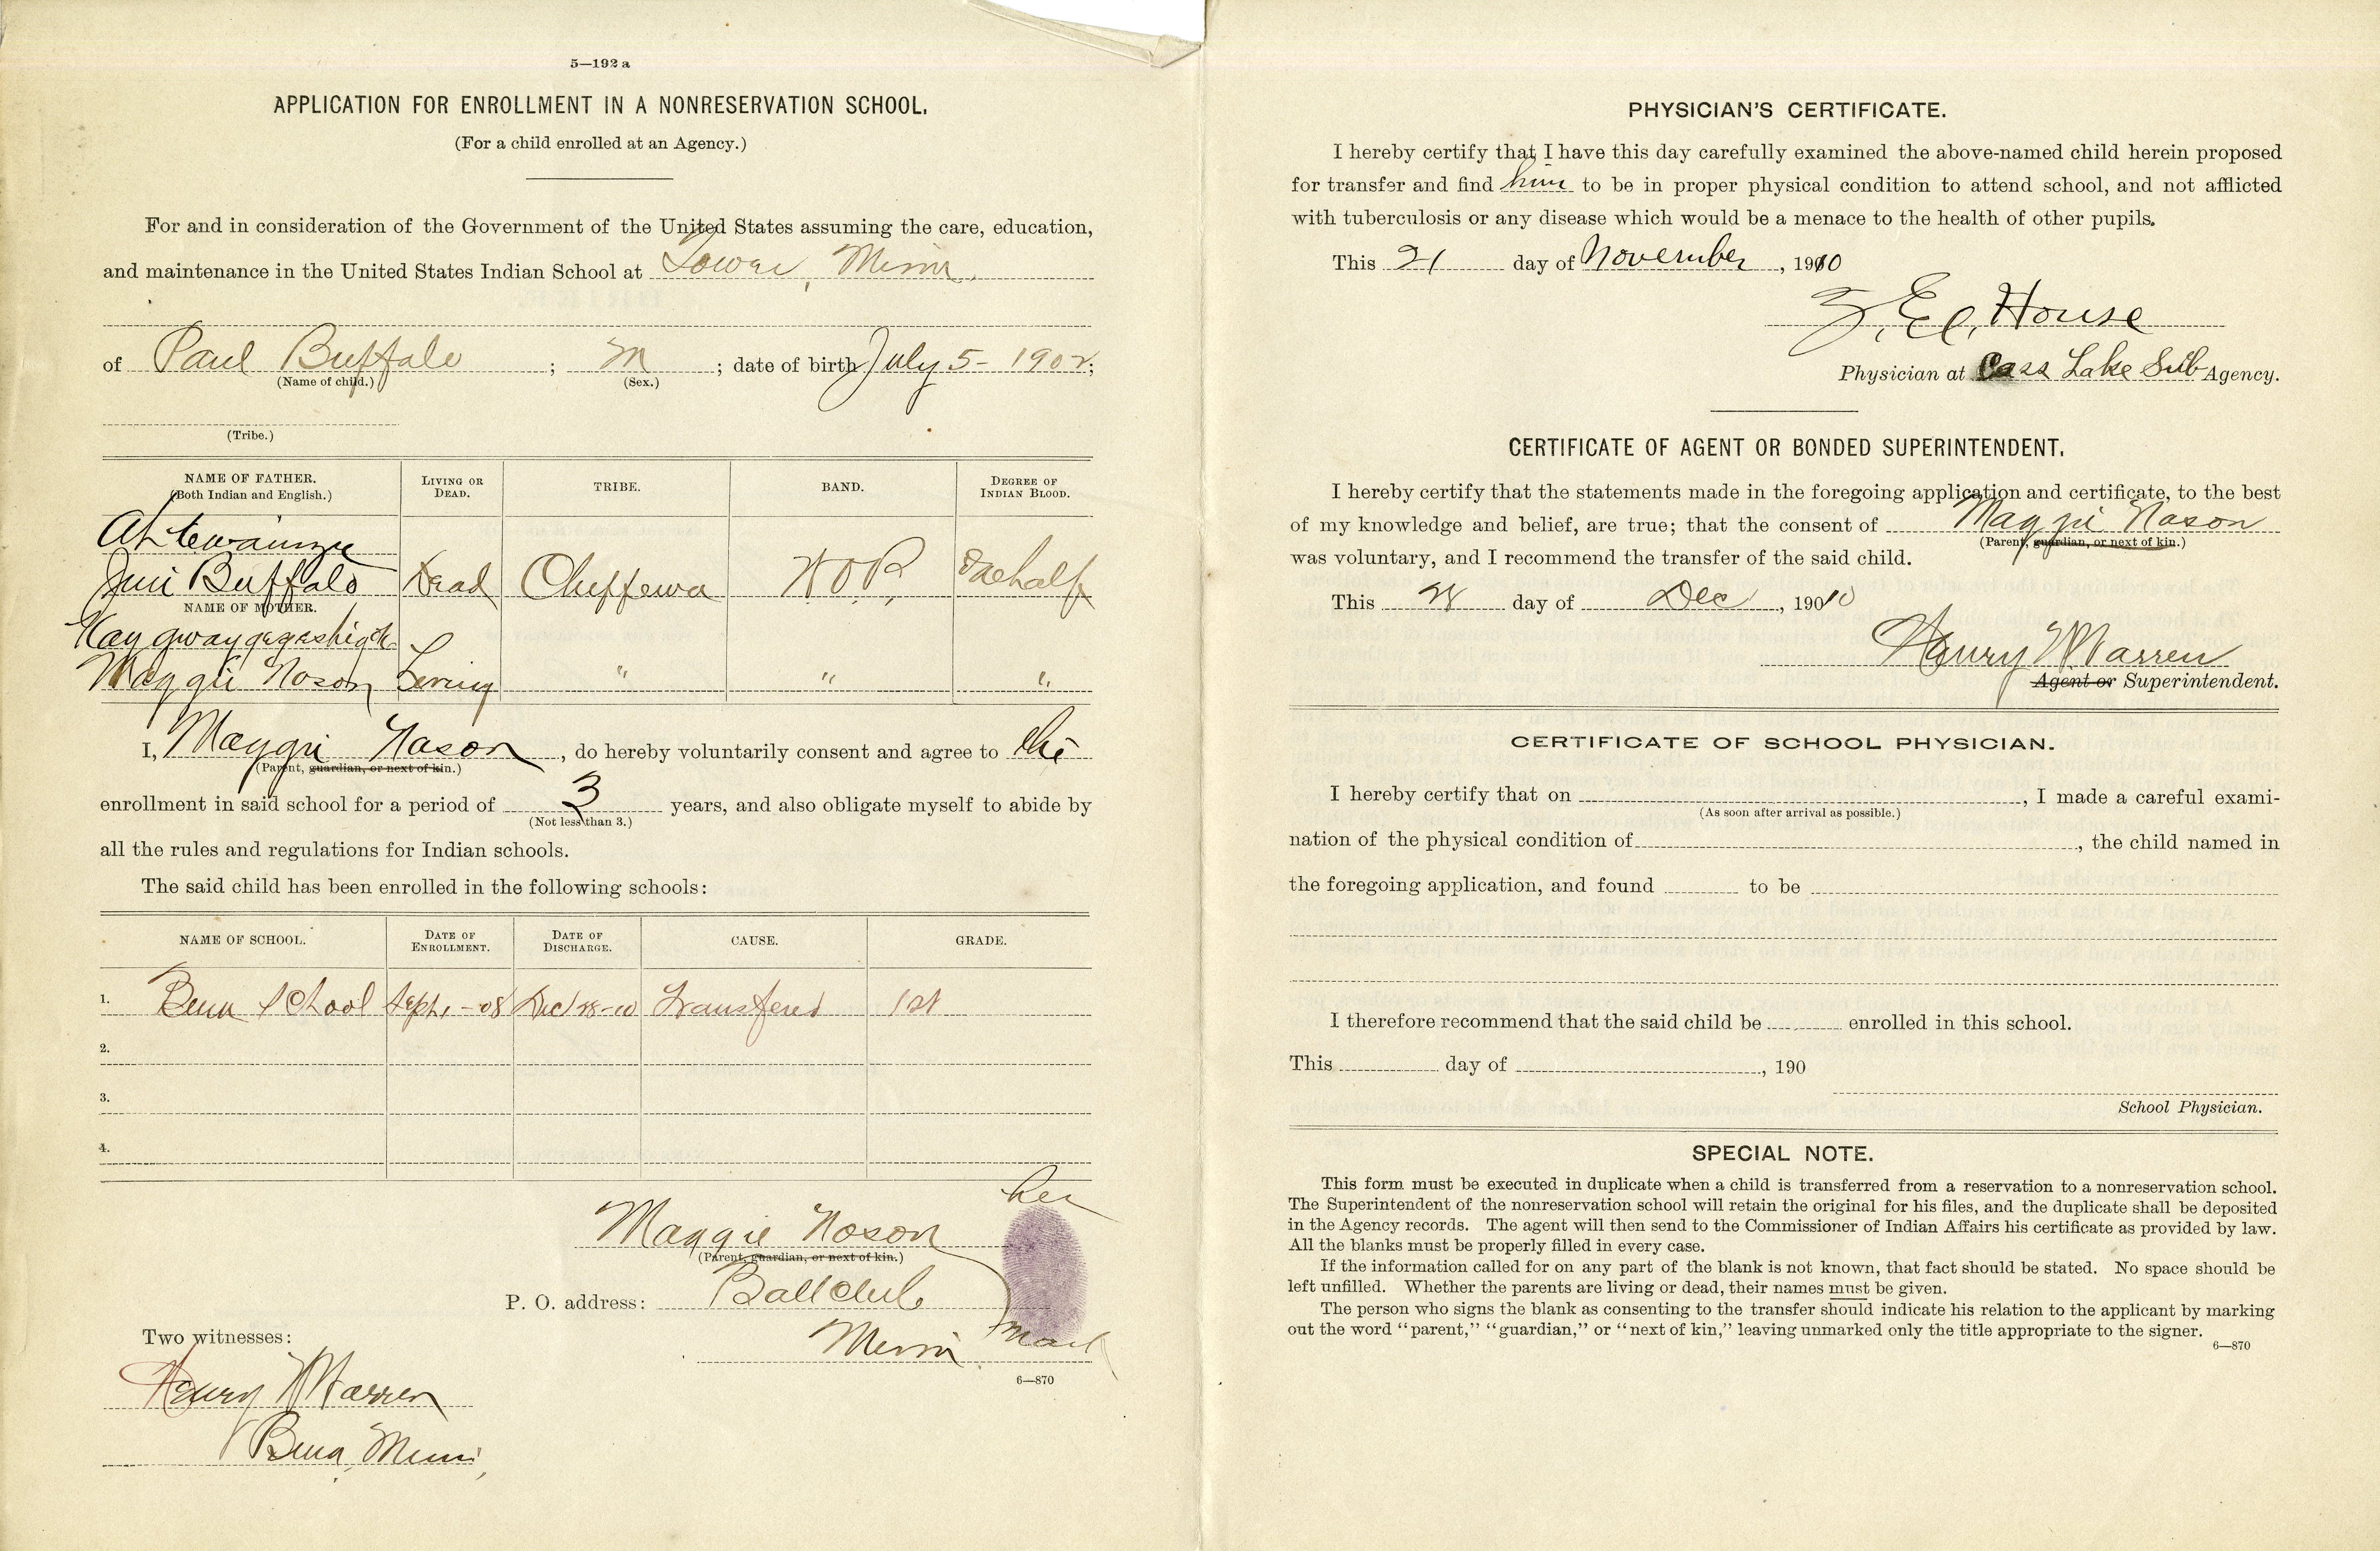 5—192 a
APPLICATION FOR ENROLLMENT IN A NONRESERVATION SCHOOL.
(For a child enrolled at an Agency.)
For and in consideration of the Government of the United States assuming the care, education,
and maintenance in the United States Indian School at Tower, Minn.
of Paul Buffalo ; M ; date of birth July 5- 1902;
(Name of child.) (Sex.)
(Tribe.)
NAME OF FATHER. (Both Indian and English.) LIVING OR DEAD. TRIBE. BAND. DEGREE OF INDIAN BLOOD.
Jim Buffalo Dead Chippewa W.O.P. One half
NAME OF MOTHER.
Kaygwaygegeshigok
Maggie Nason Living " " "
I, Maggie Nason, do hereby voluntarily consent and agree to his
(Parent, guardian, or next of kin.)
enrollment in said school for a period of 3 years, and also obligate myself to abide by
(Not less than 3.)
all the rules and regulations for Indian schools.
The said child has been enrolled in the following schools:
NAME OF SCHOOL. DATE OF ENROLLMENT. DATE OF DISCHARGE. CAUSE. GRADE.
1. Bena School Sept. 1-08 Dec 28-10 Transfered 1st
2.
3.
4.
her
Maggie Noson
(Parent, guardian, or next of kin.)
P. O. address: Ballclub
Minn mark
Two witnesses:
6—870
Henry W Warren
Bena, Minn,
PHYSICIAN'S CERTIFICATE.
I hereby certify that I have this day carefully examined the above-named child herein proposed
for transfer and find him to be in proper physical condition to attend school, and not afflicted
with tuberculosis or any disease which would be a menace to the health of other pupils.
This 21 day of November, 1910
Z. E. House
Physician at Cass Lake Sub Agency.
CERTIFICATE OF AGENT OR BONDED SUPERINTENDENT.
I hereby certify that the statements made in the foregoing application and certificate, to the best
of my knowledge and belief, are true; that the consent of Maggie Nason
(Parent, guardian, or next of kin.)
was voluntary, and I recommend the transfer of the said child.
This 28 day of Dec, 1910
Henry W Warren
Agent or Superintendent.
CERTIFICATE OF SCHOOL PHYSICIAN.
I hereby certify that on , I made a careful exami-
(As soon after arrival as possible.)
nation of the physical condition of , the child named in
the foregoing application, and found to be
I therefore recommend that the said child be enrolled in this school.
This day of , 190
School Physician.
SPECIAL NOTE.
This form must be executed in duplicate when a child is transferred from a reservation to a nonreservation school.
The Superintendent of the nonreservation school will retain the original for his files, and the duplicate shall be deposited
in the Agency records. The agent will then send to the Commissioner of Indian Affairs his certificate as provided by law.
All the blanks must be properly filled in every case.
If the information called for on any part of the blank is not known, that fact should be stated. No space should be
left unfilled. Whether the parents are living or dead, their names must be given.
The person who signs the blank as consenting to the transfer should indicate his relation to the applicant by marking
out the word "parent," "guardian," or "next of kin," leaving unmarked only the title appropriate to the signer.
6—870